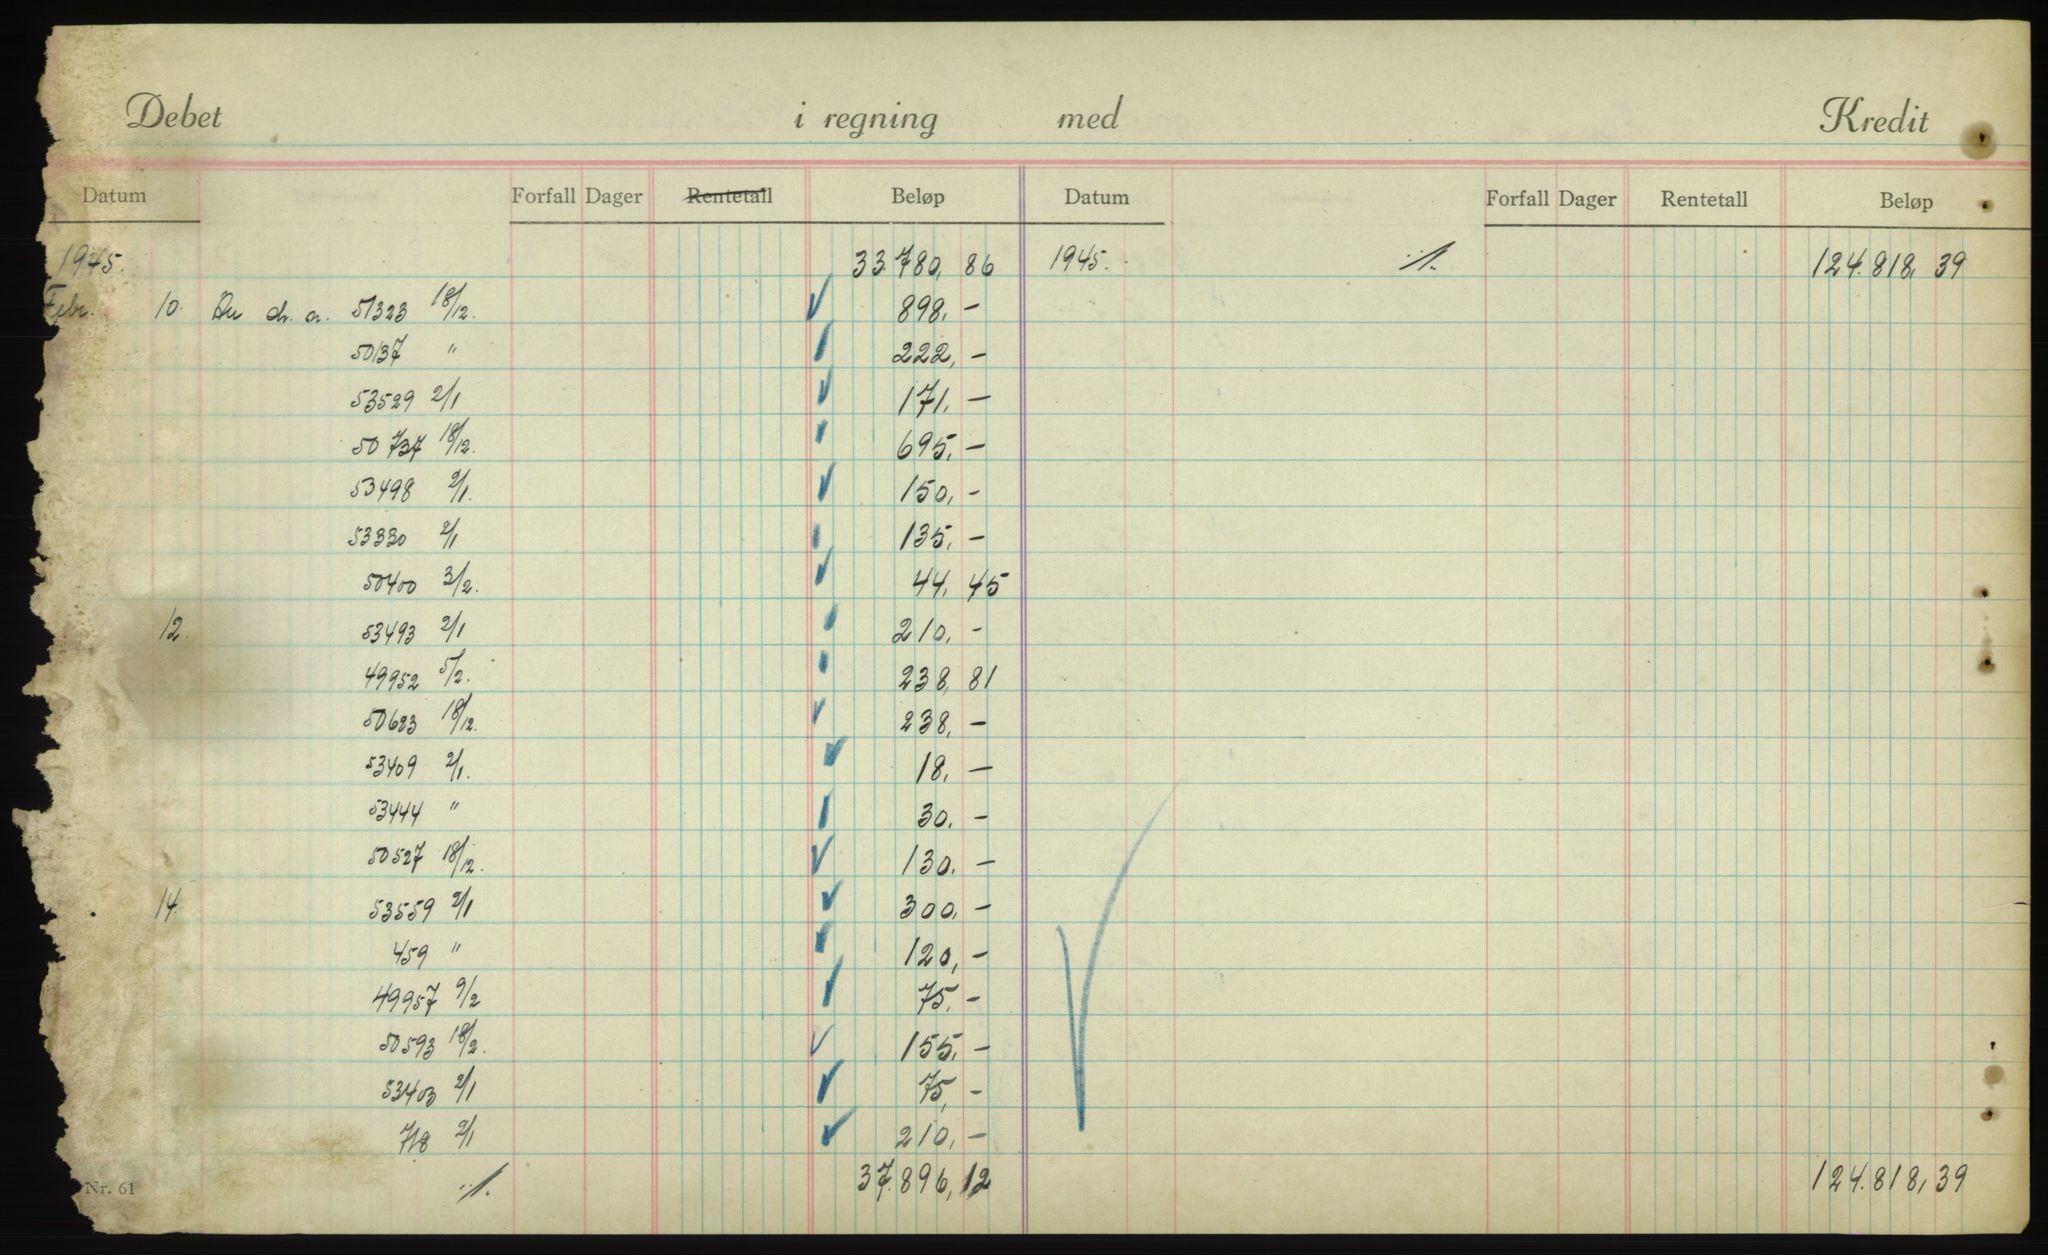 Debet i regning med Kredit
Datum Forfall Dager Rentetall Beløp Datum Forfall Dager Rentetall Beløp
1945. 33.780, 86 1945. ·/. 124.818, 39
Febr. 10. An ch. a. 51323 18/12. 898, –
50137 " 222, –
53529 2/1 171, –
50737 18/12. 695, –
53498 2/1. 150, –
53330 2/1 135, –
50400 3/2. 44, 45
12. 53493 2/1 210, –
49952 5/2. 238, 81
50623 18/12. 238, –
53409 2/1. 18, –
53444 " 30, –
50527 18/12. 130, –
14. 53559 2/1 300, –
459 " 120, –
49957 9/2 75, –
50593 18/12. 155, –
53403 2/1 75, –
718 2/1 210, –
·/. 37.896, 12 124.818, 39
Nr. 61